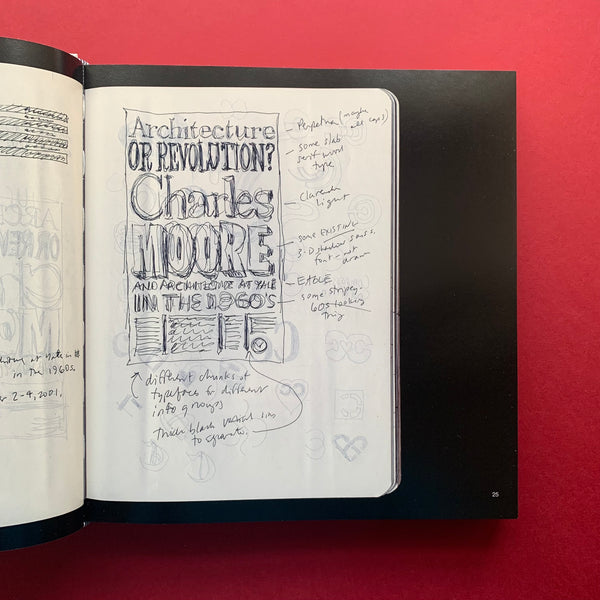 Architecture
OR REVOLUTION?
Charles
MOORE
AND ARCHITECTURE AT YALE
IN THE 1960's
Perpetua (maybe
all caps)
some slab
serif wood
type
Clarendon
Light
some EXISTING
3-D shadow sans s.
font - not
drawn
EAGLE
some stripey-
60s looking
thing
different chunks of
typefaces for different
info groups
Thick black vertical lines
to separate.
in the 1960s.
2-4, 2001.
ARC
OR REV
25